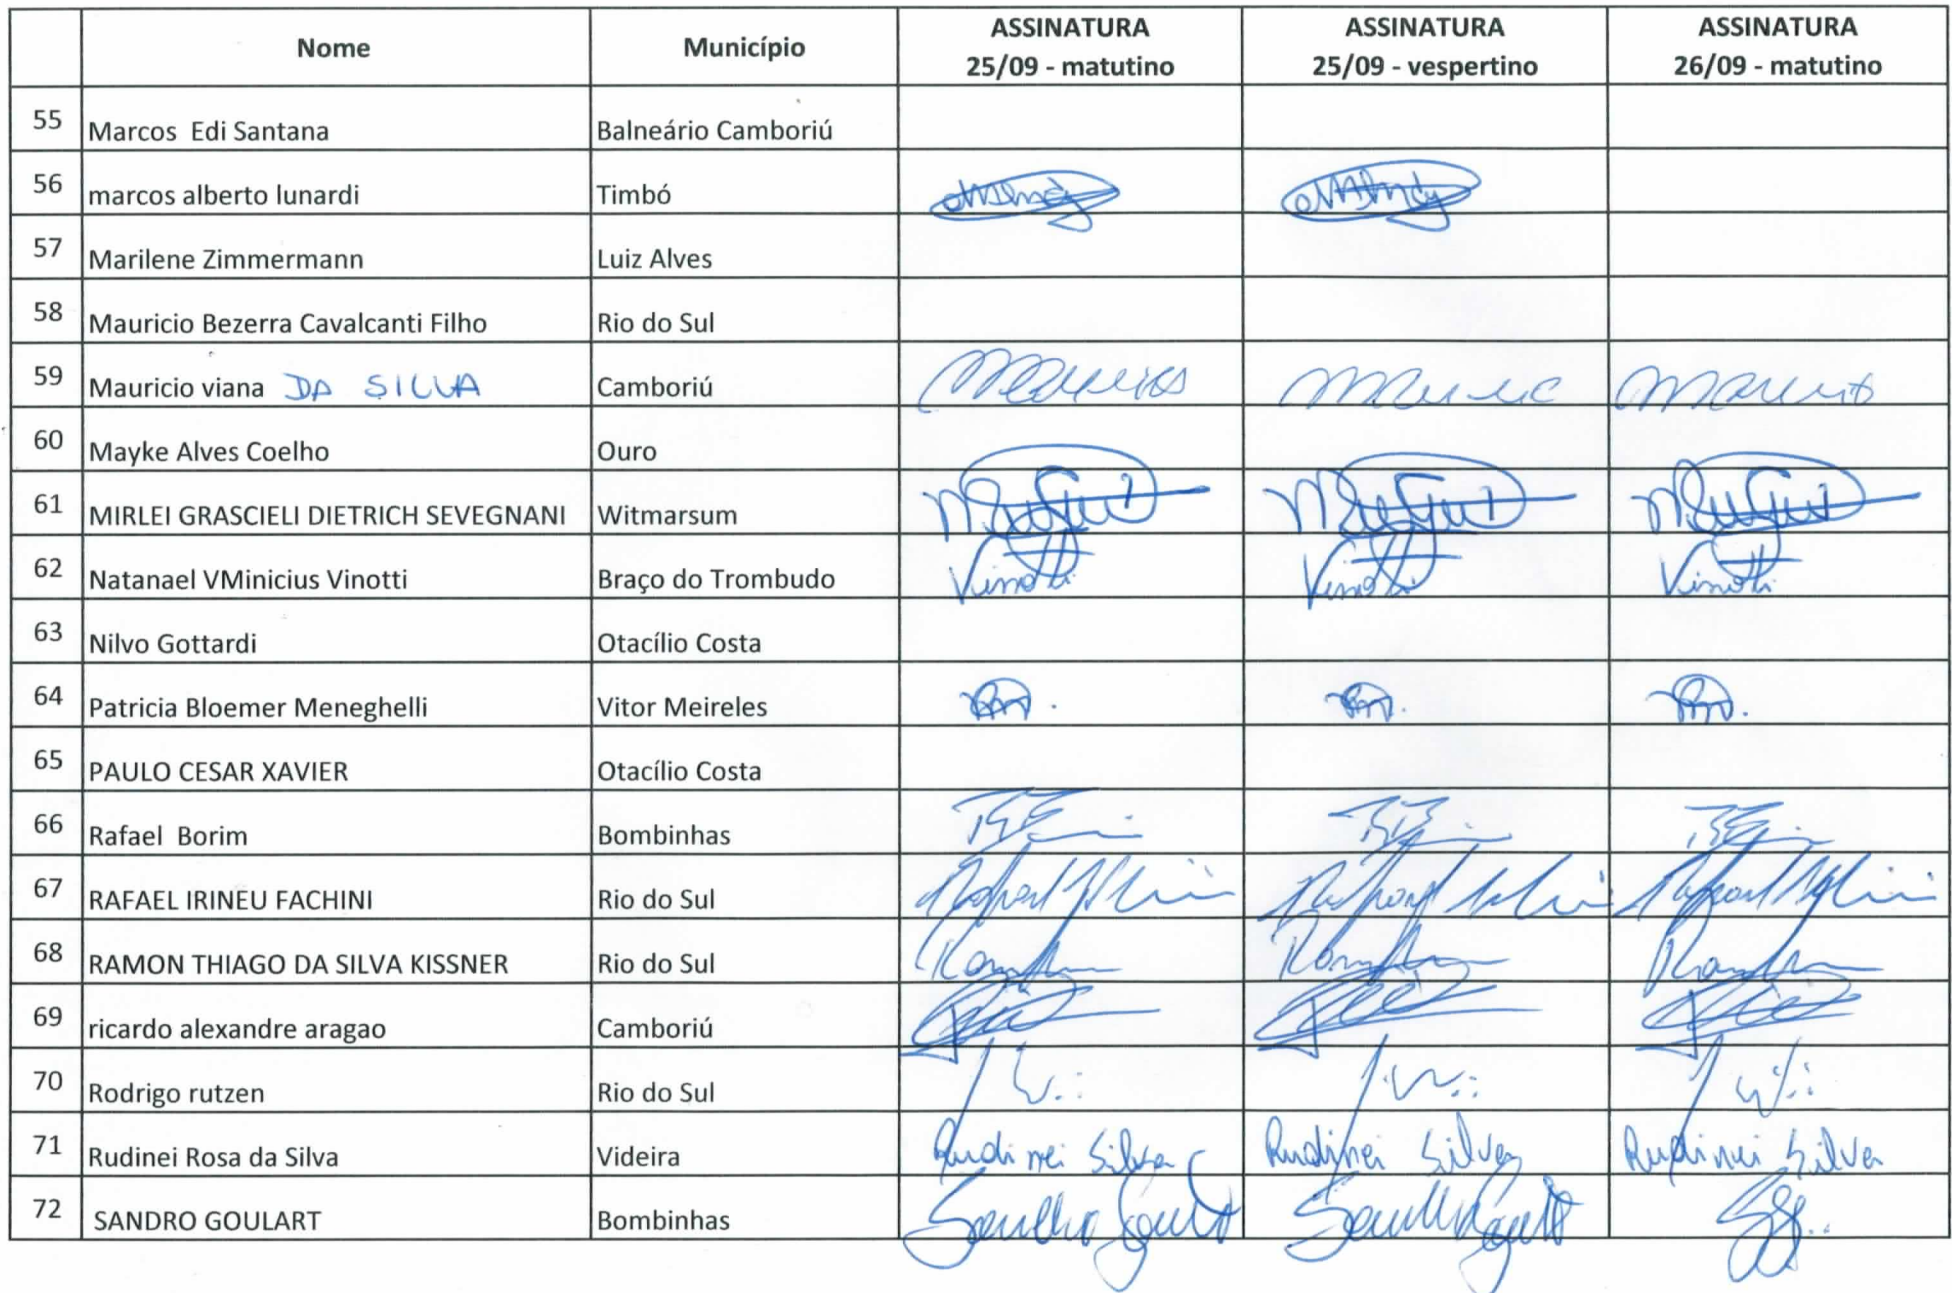 Nome Município ASSINATURA 25/09 - matutino ASSINATURA 25/09 - vespertino ASSINATURA 26/09 - matutino
55 Marcos Edi Santana Balneário Camboriú
56 marcos alberto lunardi Timbó
57 Marilene Zimmermann Luiz Alves
58 Mauricio Bezerra Cavalcanti Filho Rio do Sul
59 Mauricio viana DA SILVA Camboriú
60 Mayke Alves Coelho Ouro
61 MIRLEI GRASCIELI DIETRICH SEVEGNANI Witmarsum
62 Natanael VMinicius Vinotti Braço do Trombudo Vinotti Vinotti Vinotti
63 Nilvo Gottardi Otacílio Costa
64 Patricia Bloemer Meneghelli Vitor Meireles
65 PAULO CESAR XAVIER Otacílio Costa
66 Rafael Borim Bombinhas
67 RAFAEL IRINEU FACHINI Rio do Sul
68 RAMON THIAGO DA SILVA KISSNER Rio do Sul
69 ricardo alexandre aragao Camboriú
70 Rodrigo rutzen Rio do Sul
71 Rudinei Rosa da Silva Videira Rudinei Silva Rudinei Silva Rudinei Silva
72 SANDRO GOULART Bombinhas